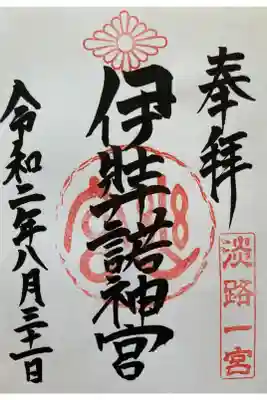 奉拝
淡路一宮
伊弉諾神宮
令和二年八月三十一日